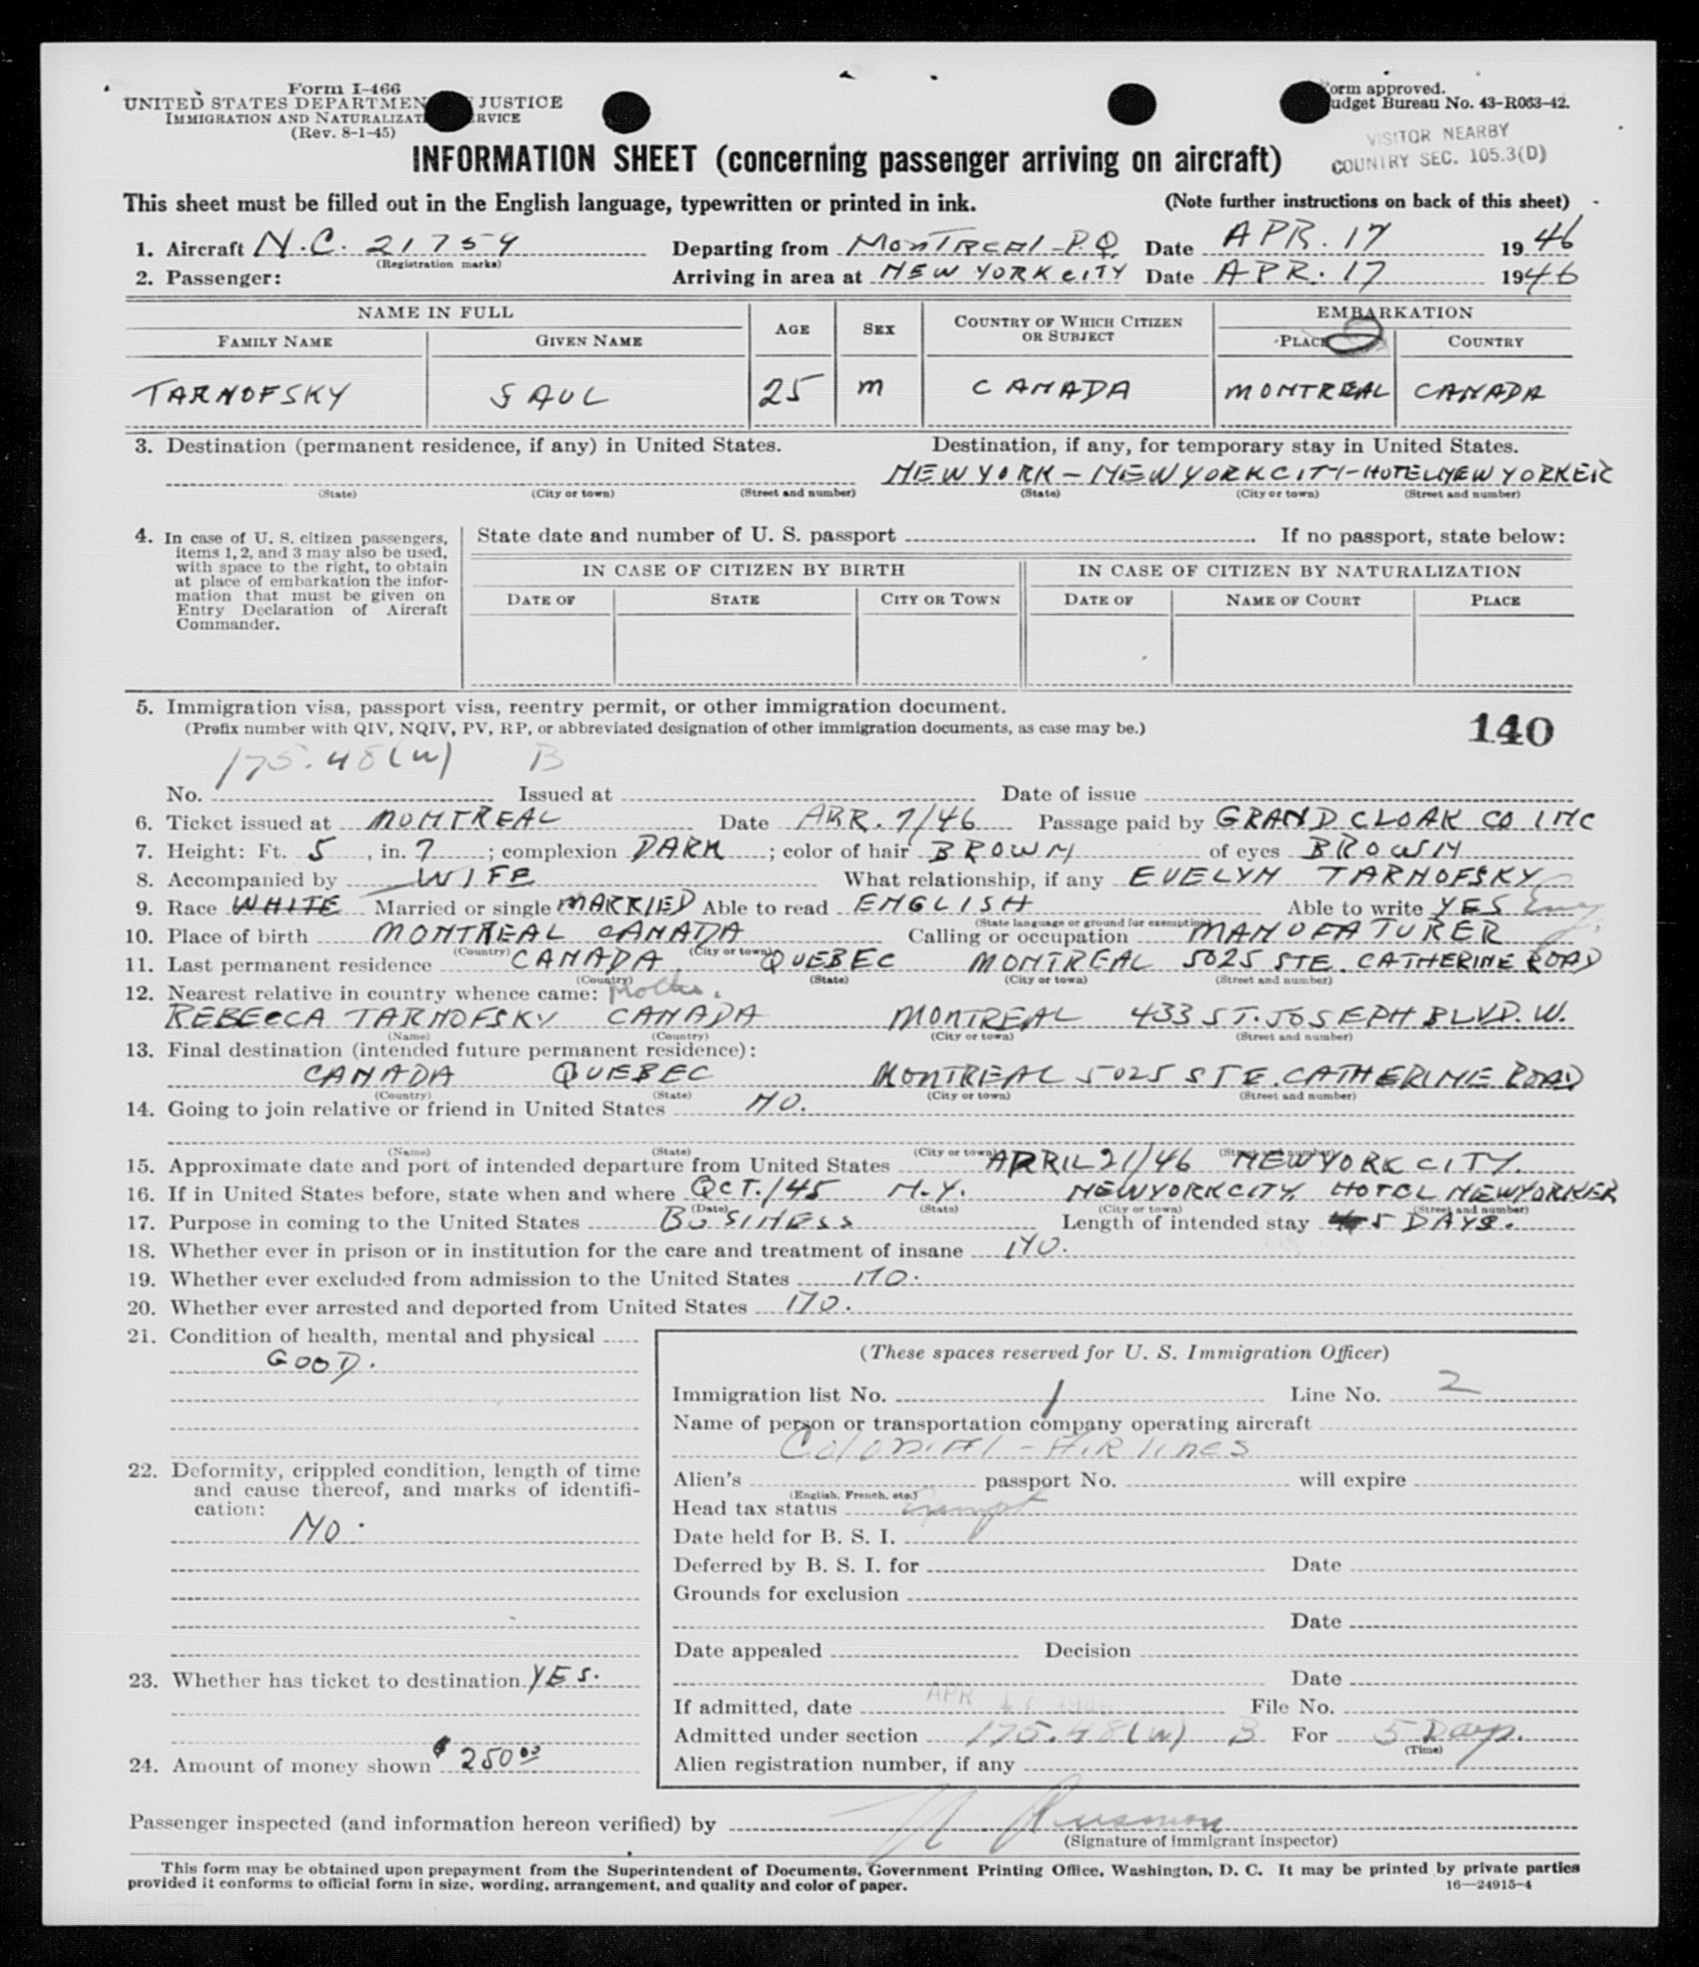 Form I-466
UNITED STATES DEPARTMEN JUSTICE
IMMIGRATION AND NATURALIZAT RVICE
(Rev. 8-1-45)
orm approved.
udget Bureau No. 43-R063-42.
VISITOR NEARBY
COUNTRY SEC. 105.3(D)
INFORMATION SHEET (concerning passenger arriving on aircraft)
This sheet must be filled out in the English language, typewritten or printed in ink. (Note further instructions on back of this sheet)
1. Aircraft N.C. 21759 Departing from MONTREAL-P.Q. Date APR. 17 1946
(Registration marks)
2. Passenger: Arriving in area at NEW YORK CITY Date APR. 17 1946
NAME IN FULL AGE SEX COUNTRY OF WHICH CITIZEN OR SUBJECT EMBARKATION
FAMILY NAME GIVEN NAME PLACE COUNTRY
TARNOFSKY SAUL 25 M CANADA MONTREAL CANADA
3. Destination (permanent residence, if any) in United States. Destination, if any, for temporary stay in United States.
NEW YORK - NEW YORK CITY - HOTEL NEW YORKER
(State) (City or town) (Street and number) (State) (City or town) (Street and number)
4. In case of U. S. citizen passengers, items 1, 2, and 3 may also be used, with space to the right, to obtain at place of embarkation the information that must be given on Entry Declaration of Aircraft Commander.
State date and number of U. S. passport . If no passport, state below:
IN CASE OF CITIZEN BY BIRTH IN CASE OF CITIZEN BY NATURALIZATION
DATE OF STATE CITY OR TOWN DATE OF NAME OF COURT PLACE
5. Immigration visa, passport visa, reentry permit, or other immigration document.
(Prefix number with QIV, NQIV, PV, RP, or abbreviated designation of other immigration documents, as case may be.)
140
175.48(w) B
No. Issued at Date of issue
6. Ticket issued at MONTREAL Date APR. 7/46 Passage paid by GRAND CLOAK CO INC
7. Height: Ft. 5, in. 7; complexion DARK; color of hair BROWN of eyes BROWN
8. Accompanied by WIFE What relationship, if any EVELYN TARNOFSKY
9. Race WHITE Married or single MARRIED Able to read ENGLISH Able to write YES
(State language or ground for exemption)
10. Place of birth MONTREAL CANADA Calling or occupation MANUFATURER
(Country) (City or town)
11. Last permanent residence CANADA QUEBEC MONTREAL 5025 STE. CATHERINE ROAD
(Country) (State) (City or town) (Street and number)
12. Nearest relative in country whence came: Mother.
REBECCA TARNOFSKY CANADA MONTREAL 433 ST. JOSEPH BLVD. W.
(Name) (Country) (City or town) (Street and number)
13. Final destination (intended future permanent residence):
CANADA QUEBEC MONTREAL 5025 STE. CATHERINE ROAD
(Country) (State) (City or town) (Street and number)
14. Going to join relative or friend in United States NO.
(Name) (State) (City or town) (Street and number)
15. Approximate date and port of intended departure from United States APRIL 21/46 NEW YORK CITY.
16. If in United States before, state when and where OCT./45 N.Y. NEW YORK CITY HOTEL NEW YORKER
(Date) (State) (City or town) (Street and number)
17. Purpose in coming to the United States BUSINESS Length of intended stay 5 DAYS.
18. Whether ever in prison or in institution for the care and treatment of insane NO.
19. Whether ever excluded from admission to the United States NO.
20. Whether ever arrested and deported from United States NO.
21. Condition of health, mental and physical
GOOD.
22. Deformity, crippled condition, length of time and cause thereof, and marks of identification:
NO.
23. Whether has ticket to destination YES.
24. Amount of money shown $250.00
(These spaces reserved for U. S. Immigration Officer)
Immigration list No. 1 Line No. 2
Name of person or transportation company operating aircraft
COLONIAL - AIR LINES
Alien's passport No. will expire
(English, French, etc.)
Head tax status Exempt
Date held for B. S. I.
Deferred by B. S. I. for Date
Grounds for exclusion
Date
Date appealed Decision
Date
If admitted, date APR 17 1946 File No.
Admitted under section 175.48(w) B For 5 Days.
(Time)
Alien registration number, if any
Passenger inspected (and information hereon verified) by
(Signature of immigrant inspector)
This form may be obtained upon prepayment from the Superintendent of Documents, Government Printing Office, Washington, D. C. It may be printed by private parties
provided it conforms to official form in size, wording, arrangement, and quality and color of paper.
16—24915-4